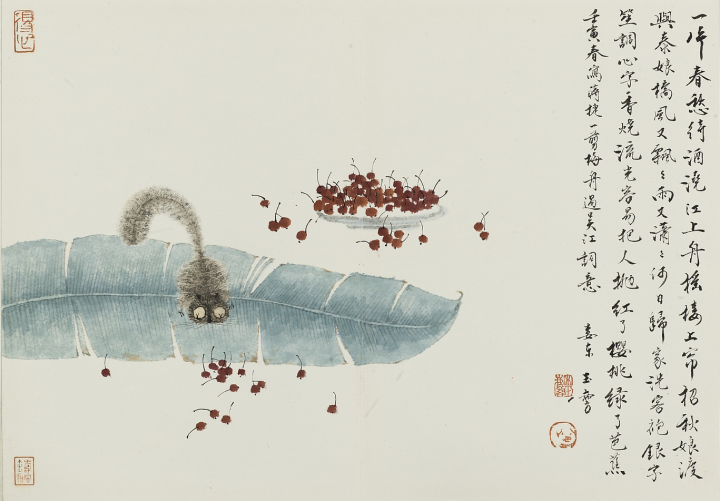 一片春愁待酒澆江上舟搖樓上帘招秋娘渡
與泰娘橋風又飄〻雨又瀟〻何日歸家洗客袍銀字
笙調心字香燒流光容易把人拋紅了櫻桃綠了芭蕉
壬寅春寫蔣捷一剪梅舟過吳江詞意
婁東